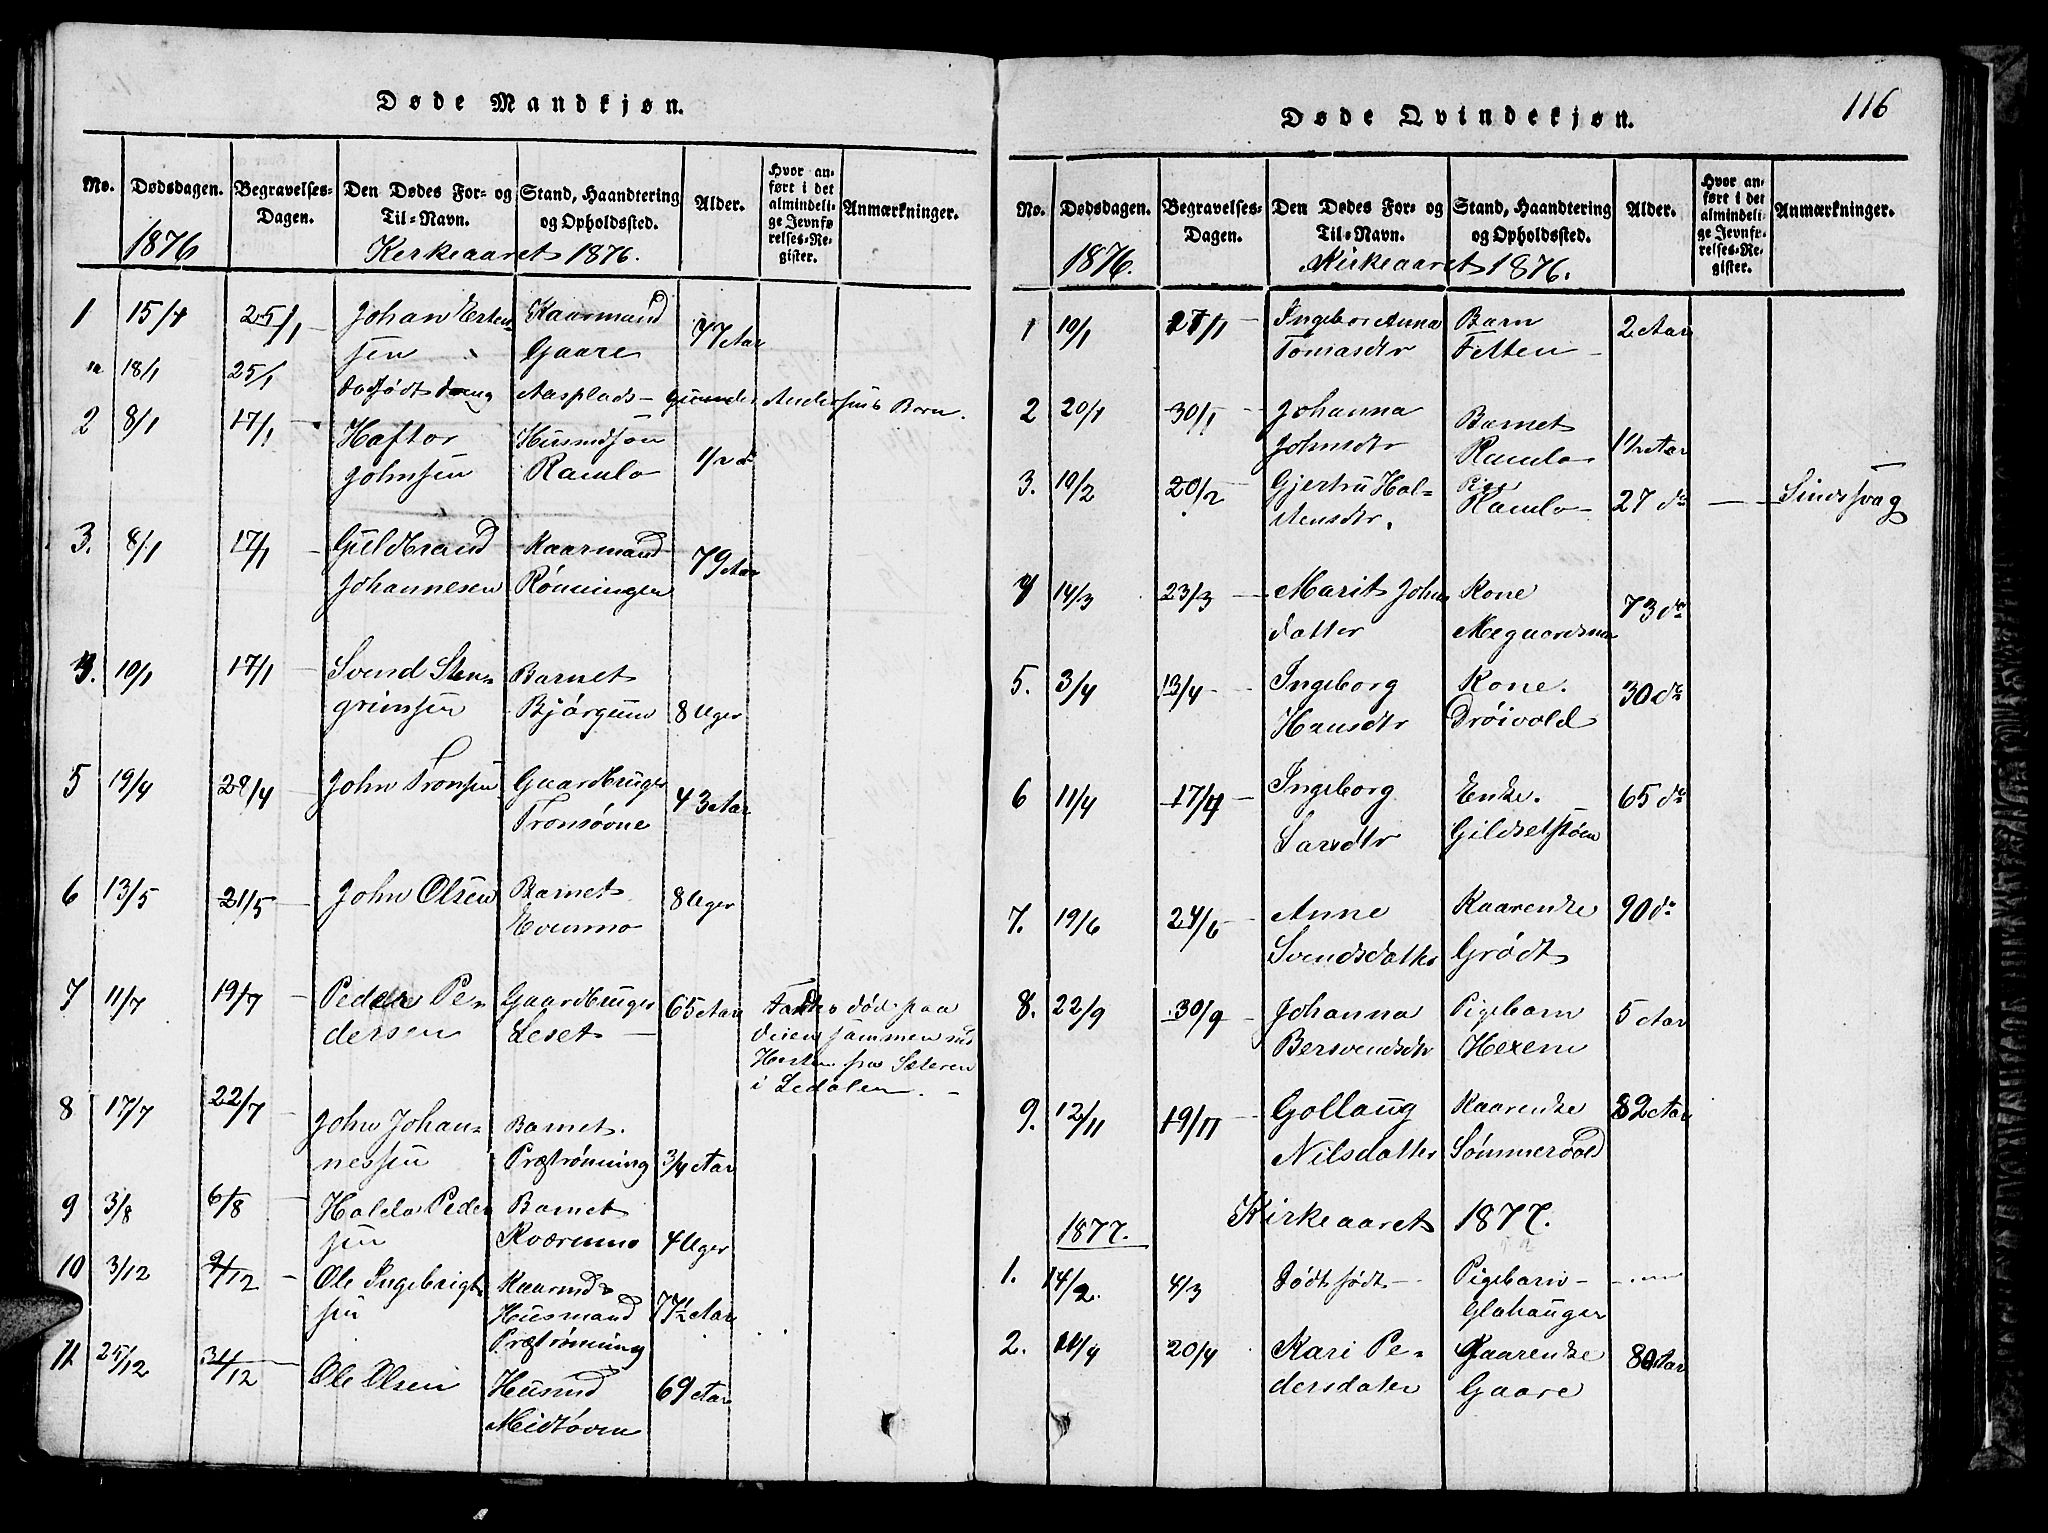 Døde Mandkjøn.
No. Dødsdagen. Begravelses-Dagen. Den Dødes For- og Til-Navn. Stand, Haandtering og Opholdssted. Alder. Hvor anført i det almindelige Jevnførelses-Register. Anmærkninger.
1876 Kerkeaaret 1876.
1 15/1 25/1 Johan Erten- Kaarmand 77 Aar
sen Gaare
18/1 25/1 dødfødt dreng Aasplads Anderssens Barn.
2 8/1 17/1 Haftor Husmdsøn 1/2 do
Johnsen Ramlo
3. 8/1 17/1 Guldbrand Kaarmand 79 Aar
Johannesen Rønningen
4. 10/1 17/1 Svend Sten- Barnet
grimsen Bjørgum 8 Uger
5 19/4 28/4 John Tronsen Gaardbruger 43 Aar
Tronsøvne
6 13/5 21/5 John Olsen Barnet 8 Uger
Evenmo
7 11/7 19/7 Peder Pe- Gaardbruger 65 Aar Fandtes død paa
dersen Leset veien sammen med
Hesten fra Sæteren
i Ledalen.
8 17/7 22/7 John Johan- Barnet.
nessen Præstrønning 3/4 Aar
9 3/8 6/8 Haldo Peder Barnet
sen Kværnmo 4 Uger
10 3/12 9/12 Ole Ingebrigt- Kaarmd
sen Husmand 77 1/2 Aar
Præstrønning
11 25/12 31/12 Ole Olsen Husmd 69 Aar
Midtøven
Døde Qvindekjøn.
116
No. Dødsdagen. Begravelses-Dagen. Den Dødes For- og Til-Navn. Stand, Haandtering og Opholdssted. Alder. Hvor anført i det almindelige Jevnførelses-Register. Anmærkninger.
1876. Kirkeaaret 1876.
1 10/1 27/1 Ingebor Anna Barn 2 Aar
Tomasdtr Fetten
2 20/1 30/1 Johanna Barnet
Johnsdtr Ramlo 1 1/2 Aar
3. 10/2 20/2 Gjertru Hal- Pige 27 do Sindssvag
stensdtr. Ramlo
4 14/3 23/3 Marit John Kone 73 do
datter Megaardsmo
5. 3/4 13/4 Ingeborg Kone. 30 do
Hansdtr Drøivold
6 11/4 17/4 Ingeborg Enke. 65 do
Larsdtr Gildsetstøen
7. 19/6 24/6 Anne Kaarenke 90 do
Svendsdatter Grødt
8. 22/9 30/9 Johanna Pigebarn 5 Aar
Bersvendsdtr Hexem
9. 12/11 19/11 Gollaug Kaarenke 82 Aar
Nilsdatter Sømmervold
1877. Kirkeaaret 1877.
1. 14/2. 4/3 Dødtfødt Pigebarn
Glahauger
2. 11/4 20/4 Kari Pe- Kaarenke 80 Aar
dersdater Gaare